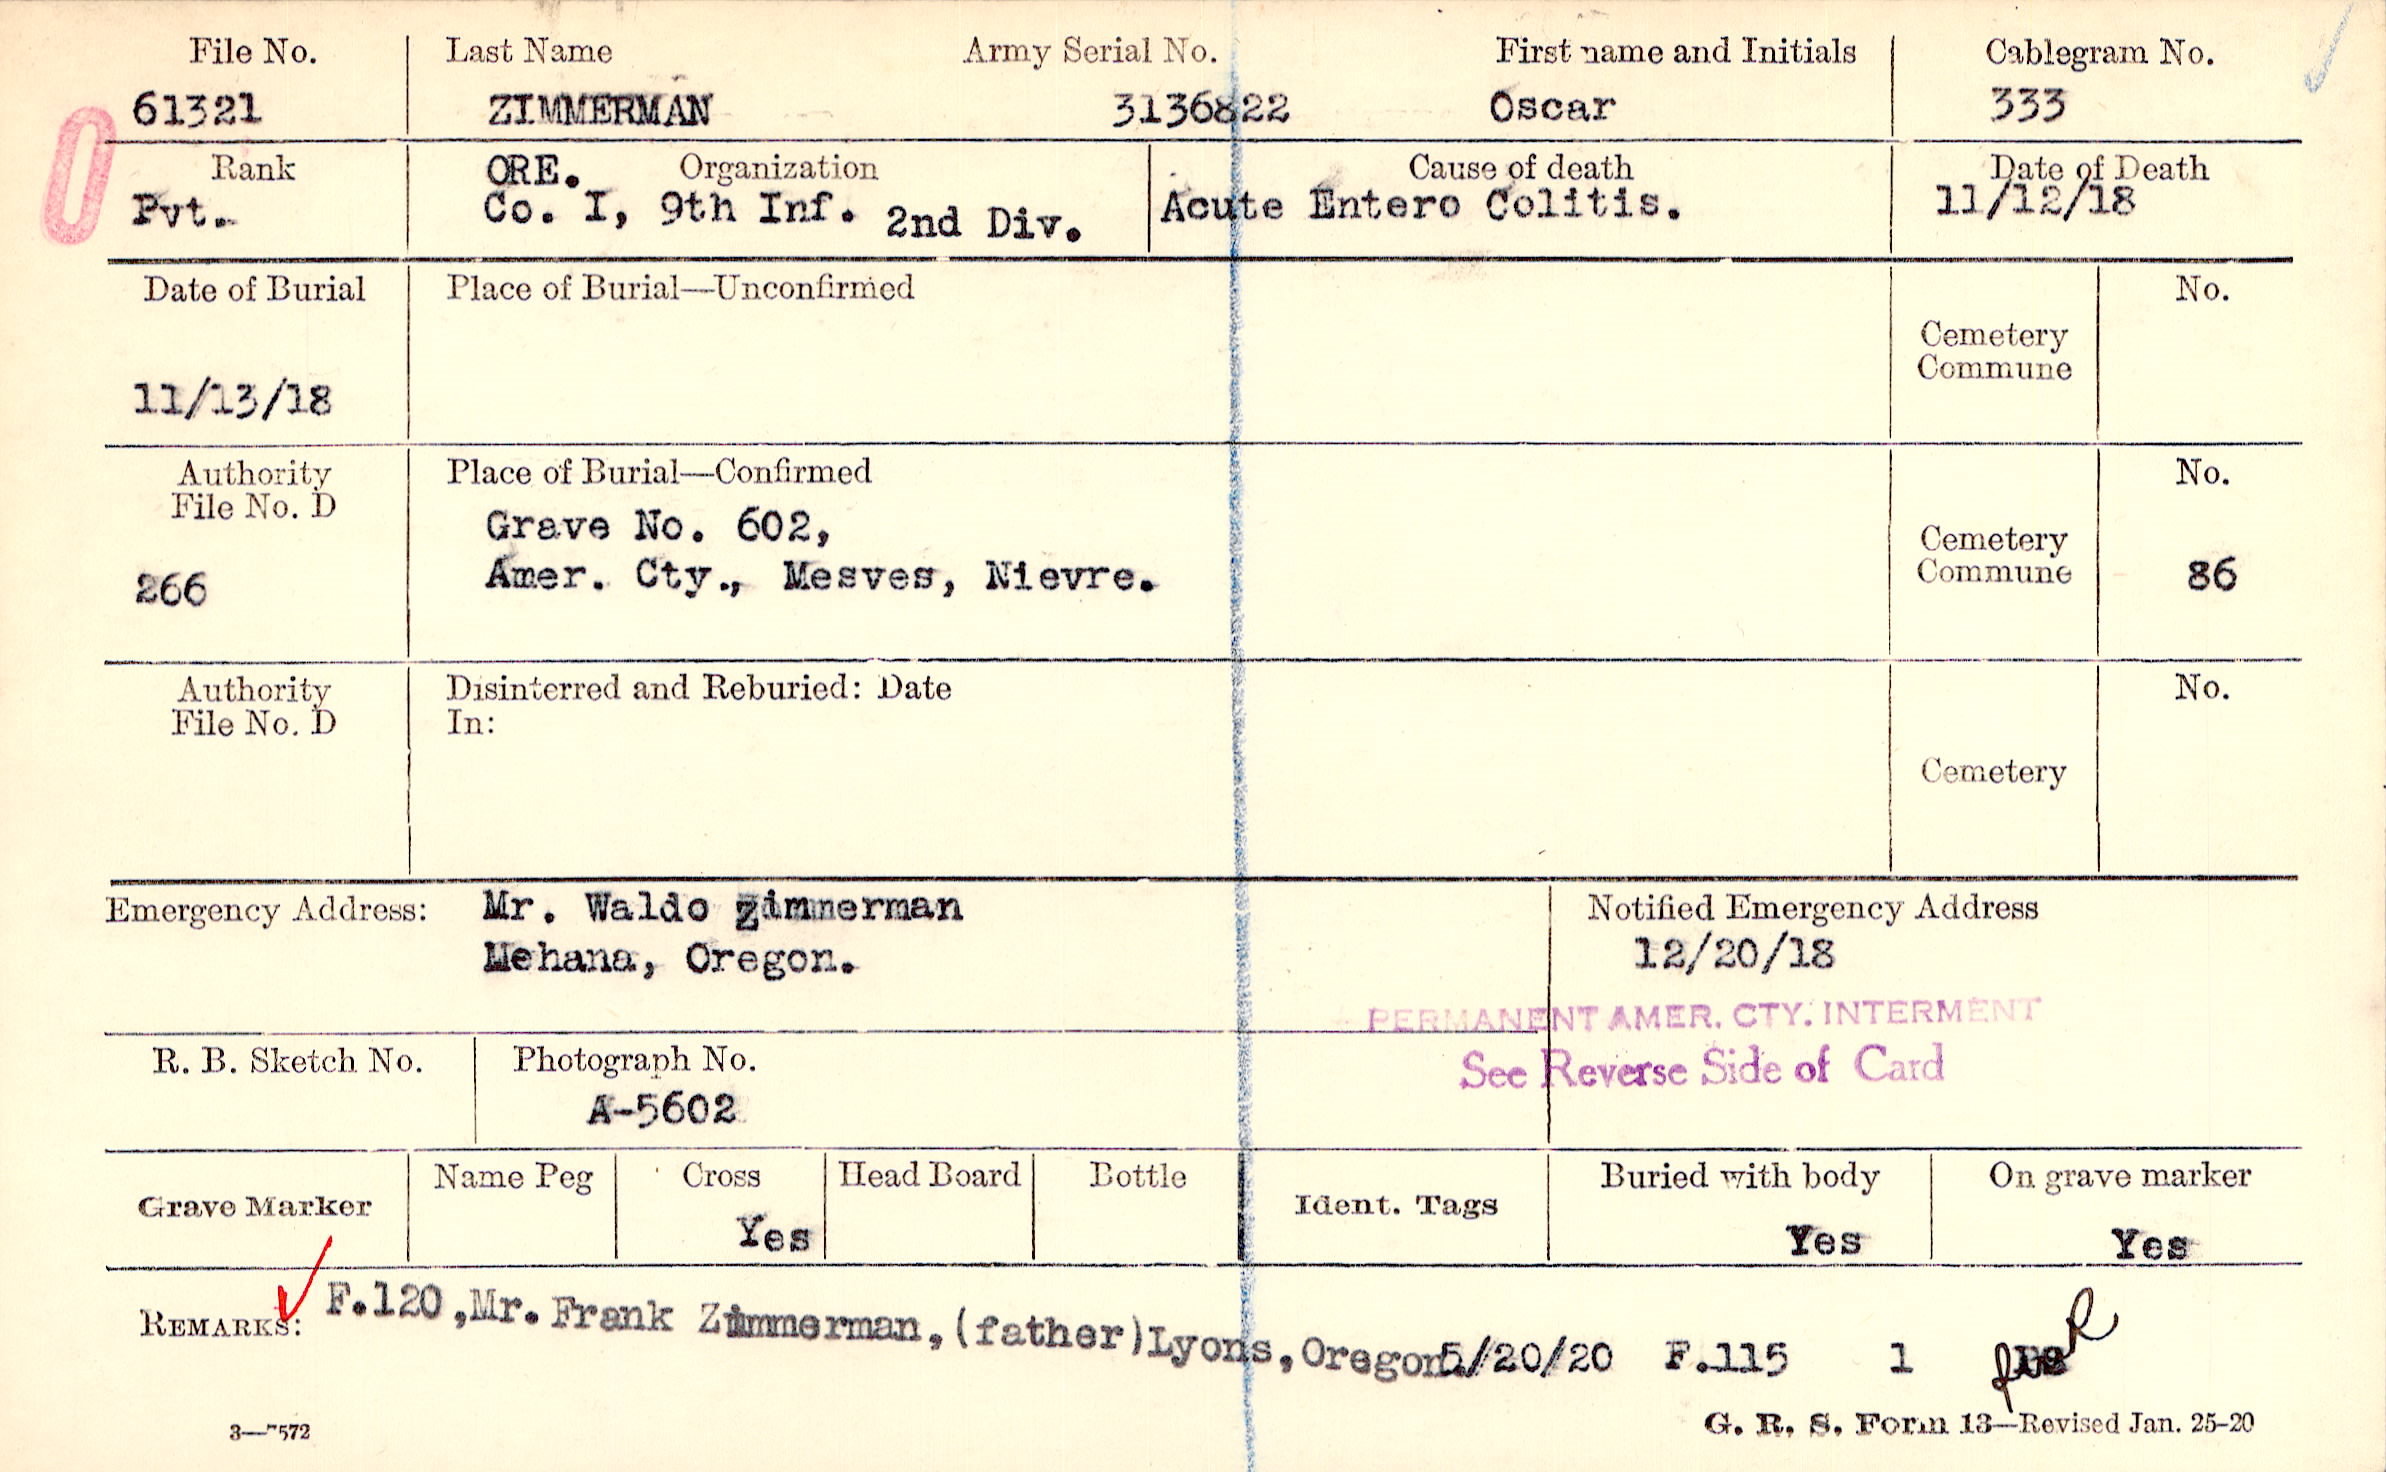 File No. Last Name Army Serial No. First name and Initials Cablegram No.
61321 ZIMMERMAN 3136822 Oscar 333
Rank ORE. Organization Cause of death Date of Death
Pvt. Co. I, 9th Inf. 2nd Div. Acute Entero Colitis. 11/12/18
Date of Burial Place of Burial—Unconfirmed No.
Cemetery
Commune
11/13/18
Authority Place of Burial—Confirmed No.
File No. D
Grave No. 602,
Cemetery
266 Amer. Cty., Mesves, Nievre. Commune 86
Authority Disinterred and Reburied: Date No.
File No. D In:
Cemetery
Emergency Address: Mr. Waldo Zimmerman Notified Emergency Address
Mehana, Oregon. 12/20/18
PERMANENT AMER. CTY. INTERMENT
R. B. Sketch No. Photograph No. See Reverse Side of Card
A-5602
Grave Marker Name Peg Cross Head Board Bottle Ident. Tags Buried with body On grave marker
Yes Yes Yes
REMARKS: F.120, Mr. Frank Zimmerman, (father) Lyons, Oregon 5/20/20 F.115 1
3—7572 G. R. S. Form 13—Revised Jan. 25-20